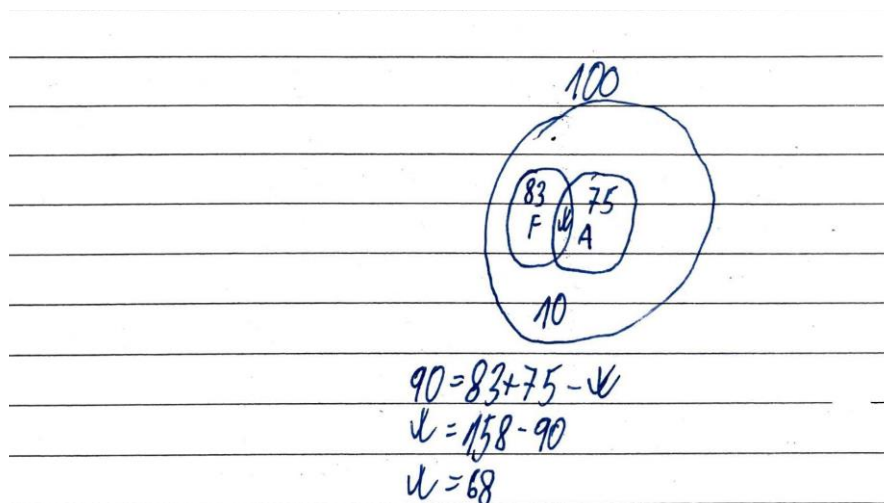 100
83 75
F x A
10
90=83+75-x
x=158-90
x=68